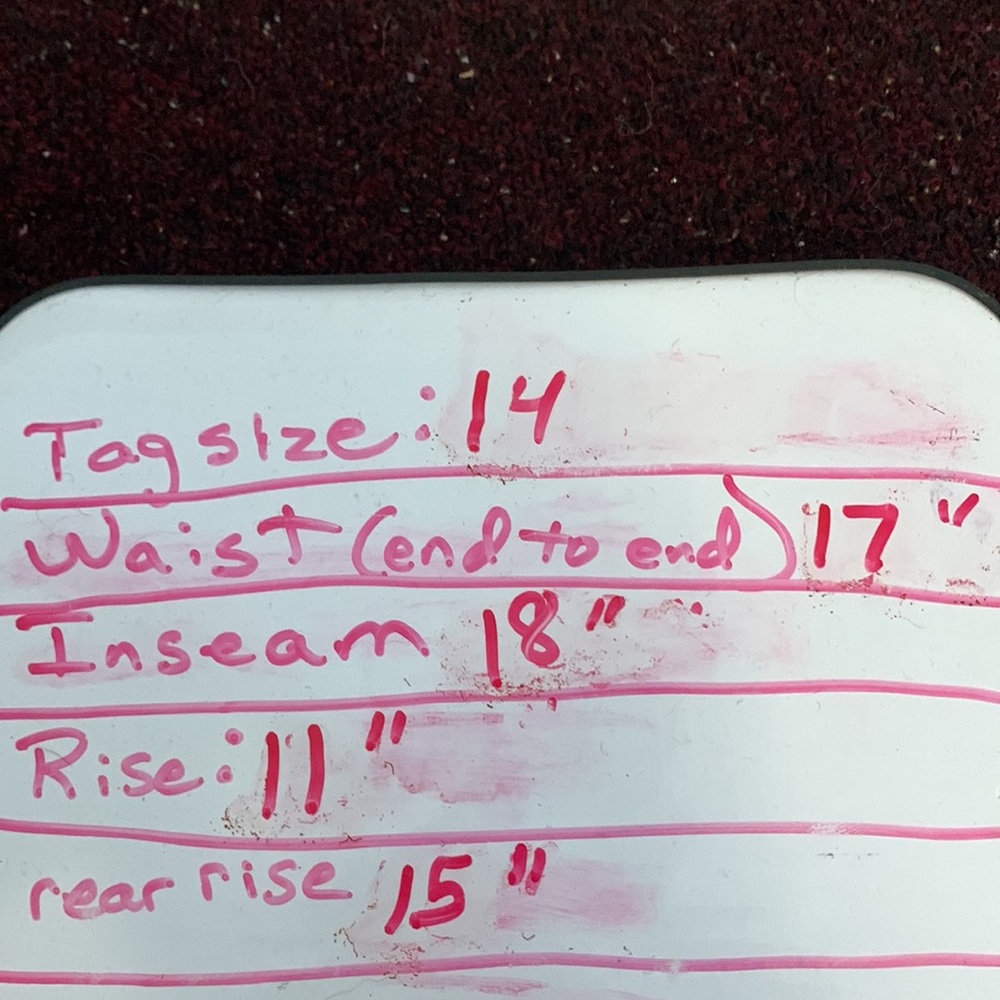 Tag size: 14
Waist (end to end) 17"
Inseam 18"
Rise: 11"
rear rise 15"